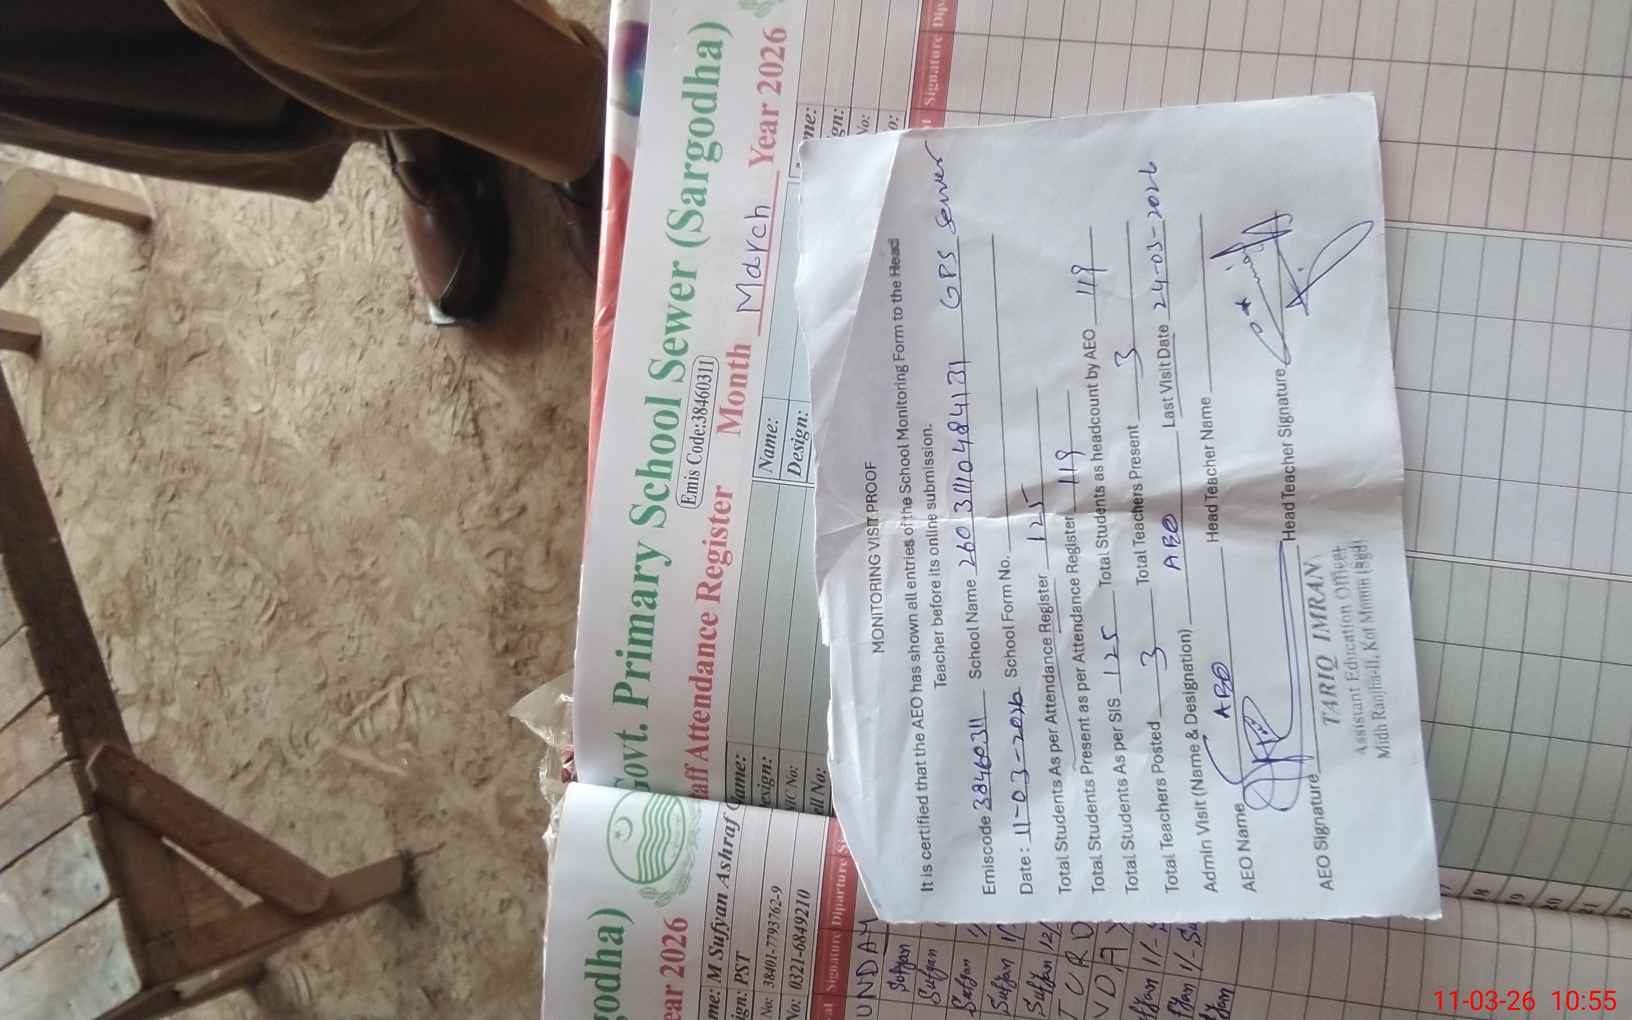 Govt. Primary School Sewer (Sargodha)
Emis Code:38460311
Staff Attendance Register Month March Year 2026
Name:
Design:
godha)
Year 2026
Name: M Sufyan Ashraf
Design: PST
No: 38401-7793762-9
No: 0321-6849210
Signature Diparture
Signature
UNDAY
Sufyan
Sufyan
Sufyan
Sufyan
Sufyan
MONITORING VISIT PROOF
It is certified that the AEO has shown all entries of the School Monitoring Form to the Head
Teacher before its online submission.
Emiscode 38460311 School Name 26031110484131 GPS Sewer
Date: 11-03-2026 School Form No.
Total Students As per Attendance Register 125
Total Students Present as per Attendance Register 119
Total Students As per SIS 125 Total Students as headcount by AEO 119
Total Teachers Posted 3 Total Teachers Present 3
Admin Visit (Name & Designation) AEO Last Visit Date 24-03-2026
AEO Name AEO Head Teacher Name
AEO Signature Head Teacher Signature
TARIQ IMRAN
Assistant Education Officer
Midh Ranjha-II, Kot Momin (Sgd)
18
19
11-03-26 10:55